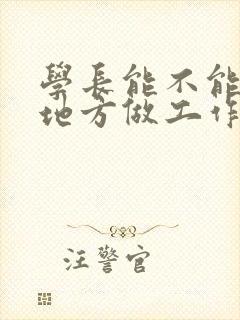 學長能不能
地方做工作
汪警官